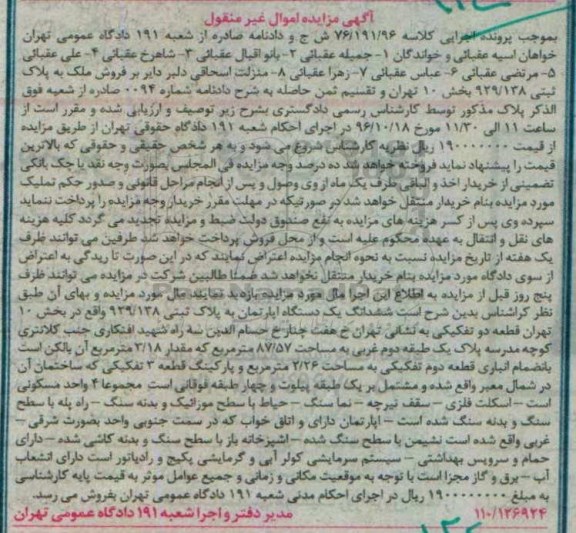 آگهی مزایده اموال غیر منقول
بموجب پرونده اجرایی کلاسه ۷۶/۱۹۱/۹۶ ش ج و دادنامه صادره از شعبه ۱۹۱ دادگاه عمومی تهران
خواهان آسیه عقبائی و خواندگان ۱- جمیله عقبائی ۲- بانو اقبال عقبائی ۳- شاهرخ عقبائی ۴- علی عقبائی
۵- مرتضی عقبائی ۶- عباس عقبائی ۷- زهرا عقبائی ۸- منزلت اسحاقی دلبر دایر بر فروش ملک به پلاک
ثبتی ۹۲۹/۱۳۸ بخش ۱۰ تهران و تقسیم ثمن حاصله به شرح دادنامه شماره ۰۰۹۴ صادره از شعبه فوق
الذکر پلاک مذکور توسط کارشناس رسمی دادگستری بشرح زیر توصیف و ارزیابی شده و مقرر است از
ساعت ۱۱ الی ۱۱/۳۰ مورخ ۹۶/۱۰/۱۸ در اجرای احکام شعبه ۱۹۱ دادگاه حقوقی تهران از طریق مزایده
از قیمت ۱۹۰۰۰۰۰۰۰۰ ریال نظریه کارشناس شروع می شود و به هر شخص حقیقی و حقوقی که بالاترین
قیمت را پیشنهاد نماید فروخته خواهد شد ده درصد وجه مزایده فی المجلس بصورت وجه نقد یا چک بانکی
تضمینی از خریدار اخذ و الباقی ظرف یک ماه از وی وصول و پس از انجام مراحل قانونی و صدور حکم تملیک
مورد مزایده بنام خریدار منتقل خواهد شد در صورتیکه در مهلت مقرر خریدار وجه مزایده را پرداخت ننماید
سپرده وی پس از کسر هزینه های مزایده به نفع صندوق دولت ضبط و مزایده تجدید می گردد کلیه هزینه
های نقل و انتقال به عهده محکوم علیه است و از محل فروش پرداخت خواهد شد طرفین می توانند ظرف
یک هفته از تاریخ مزایده نسبت به نحوه انجام مزایده اعتراض نمایند که در این صورت تا رسیدگی به اعتراض
از سوی دادگاه مورد مزایده بنام خریدار منتقل نخواهد شد ضمنا طالبین شرکت در مزایده می توانند ظرف
پنج روز قبل از مزایده به اطلاع این اجرا مال مورد مزایده بازدید نمایند مال مورد مزایده و بهای آن طبق
نظر کراشناس بدین شرح است ششدانگ یک دستگاه آپارتمان به پلاک ثبتی ۹۲۹/۱۳۸ واقع در بخش ۱۰
تهران قطعه دو تفکیکی به نشانی تهران خ هفت چنار خ حسام الدین سه راه شهید افتکاری جنب کلانتری
کوچه مدرسه پلاک یک طبقه دوم غربی به مساحت ۸۷/۵۷ مترمربع که مقدار ۳/۱۸ مترمربع آن بالکن است
بانضمام انباری قطعه دوم تفکیکی به مساحت ۲/۲۶ مترمربع و پارکینگ قطعه ۳ تفکیکی که ساختمان آن
در شمال معبر واقع شده و مشتمل بر یک طبقه پیلوت و چهار طبقه فوقانی است مجموعا ۴ واحد مسکونی
است – اسکلت فلزی – سقف تیرچه – نما سنگ – حیاط با سطح موزائیک و بدنه سنگ – راه پله با سطح
سنگ و بدنه سنگ شده است – آپارتمان دارای و اتاق خواب که در سمت جنوبی واحد بصورت شرقی –
غربی واقع شده است نشیمن با سطح سنگ شده – آشپزخانه باز با سطح سنگ و بدنه کاشی شده – دارای
حمام و سرویس بهداشتی – سیستم سرمایشی کولر آبی و گرمایشی پکیج و رادیاتور است دارای انشعاب
آب – برق و گاز مجزا است با توجه به موقعیت مکانی و زمانی و جمیع عوامل موثر به قیمت پایه کارشناسی
به مبلغ ۱۹۰۰۰۰۰۰۰۰ ریال در اجرای احکام مدنی شعبه ۱۹۱ دادگاه عمومی تهران بفروش می رسد.
۱۱۰/۱۲۶۹۲۴ مدیر دفتر و اجرا شعبه ۱۹۱ دادگاه عمومی تهران